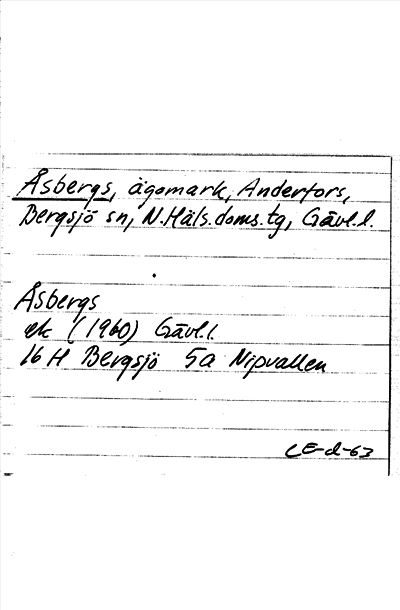 Åsbergs, ägomark, Anderfors,
Bergsjö sn, N.Häls.doms.tg, Gävl.l.
Åsbergs
ek (1960) Gävl.l.
16 H Bergsjö 5a Nipvallen
CE-d-63